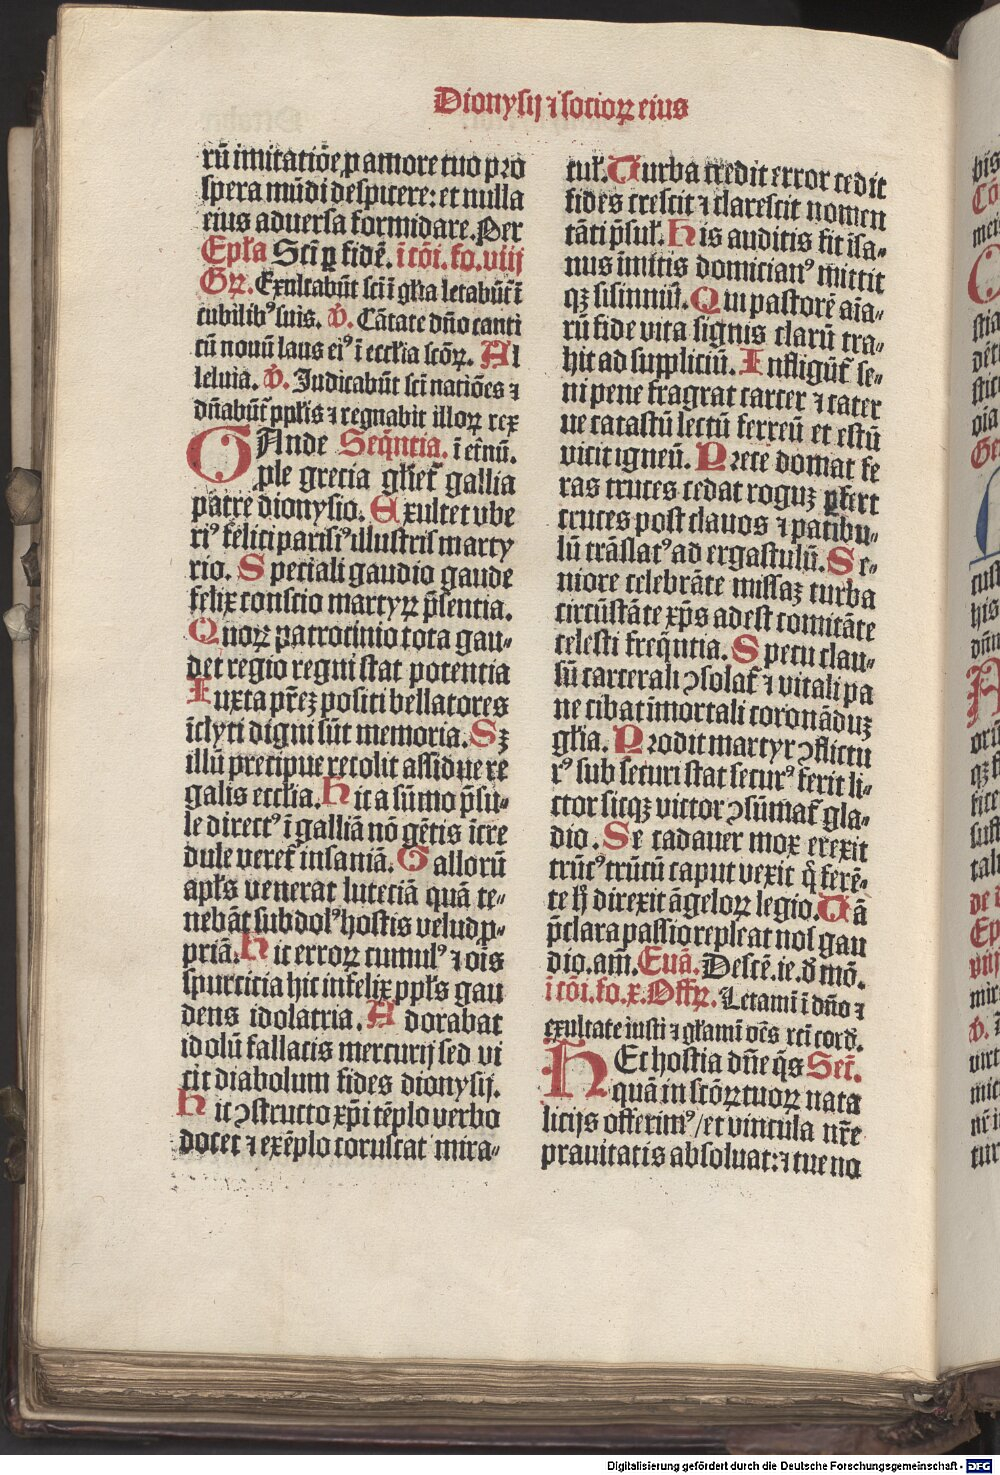 Dionysij ⁊ socioꝝ eius
rū imitatiōe, p amore tuo pro
spera mūdi despicere: et nulla
eius aduersa formidare. Per
Epła Scī ꝑ fidē. ī cōi. fo. viij
Gꝝ. Exultabūt scī ī głia letabūt ī
cubilibꝰ suis. v̄. Cātate dño canti
cū nouū laus eiꝰ ī eccłia scōꝝ. Al
leluia. v̄. Iudicabūt scī natiōes ⁊
dñabūt ppłis ⁊ regnabit illoꝝ rex
GAude Seq̄ntia. ī etīnū.
ple grecia głiet gallia
patre dionysio. Exultet vbe
riꝰ felici parisiꝰ illustris marty
rio. Speciali gaudio gaude
felix conscio martyꝝ p̄sentia.
Quoꝝ patrocinio tota gau⸗
det regio regni stat potentia
Iuxta pr̄eꝫ positi bellatores
īclyti digni sūt memoria. Sꝫ
illū precipue recolit assidue re
galis eccłia. Hic a sūmo p̄su⸗
le directꝰ ī galliā nō gētis īcre
dule veret insaniā. Gallorū
apłs venerat luteciā quā te⸗
nebāt subdolꝰ hostis velud ꝓ⸗
priā. Hic erroꝝ cumulꝰ ⁊ oīs
spurcicia hic infelix ppłs gau
dens idolatria. Adorabat
idolū fallacis mercurij sed vi
cit diabolum fides dionysij.
Hic ↄstructo xp̄i tēplo verbo
docet ⁊ exēplo coruscat mira⸗
cuł. Turba credit error cedit
fides crescit ⁊ clarescit nomen
tāti p̄suł. His auditis fit īsa⸗
nus īmitis domicianꝰ mittit
qꝫ sisinniū. Qui pastorē aīa⸗
rū fide vita signis clarū tra⸗
hit ad suppliciū. Infligūt se⸗
ni pene fragrat carcer ⁊ cater
ue catastū lectū ferreū et estū
vicit igneū. Prece domat fe
ras truces cedat roguꝫ ꝑfert
cruces post clauos ⁊ patibu⸗
lū trāslatꝰ ad ergastulū. Se⸗
niore celebrāte missaꝫ turba
circūstāte xp̄s adest comitāte
celesti freq̄ntia. Specu clau⸗
sū carcerali ↄsolat ⁊ vitali pa
ne cibat īmortali coronāduꝫ
głia. Prodit martyr ↄflictu
rꝰ sub securi stat securꝰ ferit li⸗
ctor sicqꝫ victor ↄsūmat gla⸗
dio. Se cadauer mox erexit
trūcꝰ trūcū caput vexit q̄ ferē⸗
te h̄ direxit āgeloꝝ legio. Tā
p̄clara passio repleat nos gau
dio. am̄. Euā. Descē. ie. d̄ mō.
ī cōi. fo. x. Offꝝ. Letamī ī dño ⁊
exultate iusti ⁊ głiamī oēs rcī cord̄.
HEc hostia dñe q̄s Sec̄.
quā in scōꝝ tuoꝝ nata
licijs offerimꝰ/ et vincula nr̄e
prauitatis absoluat: ⁊ tue no
Digitalisierung gefördert durch die Deutsche Forschungsgemeinschaft - DFG